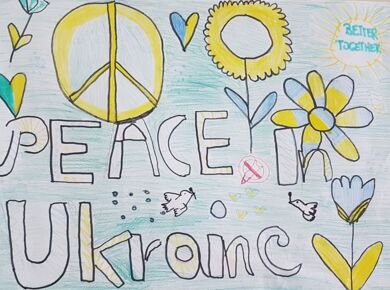 BETTER
TOGETHER
PEACE in
Ukraine